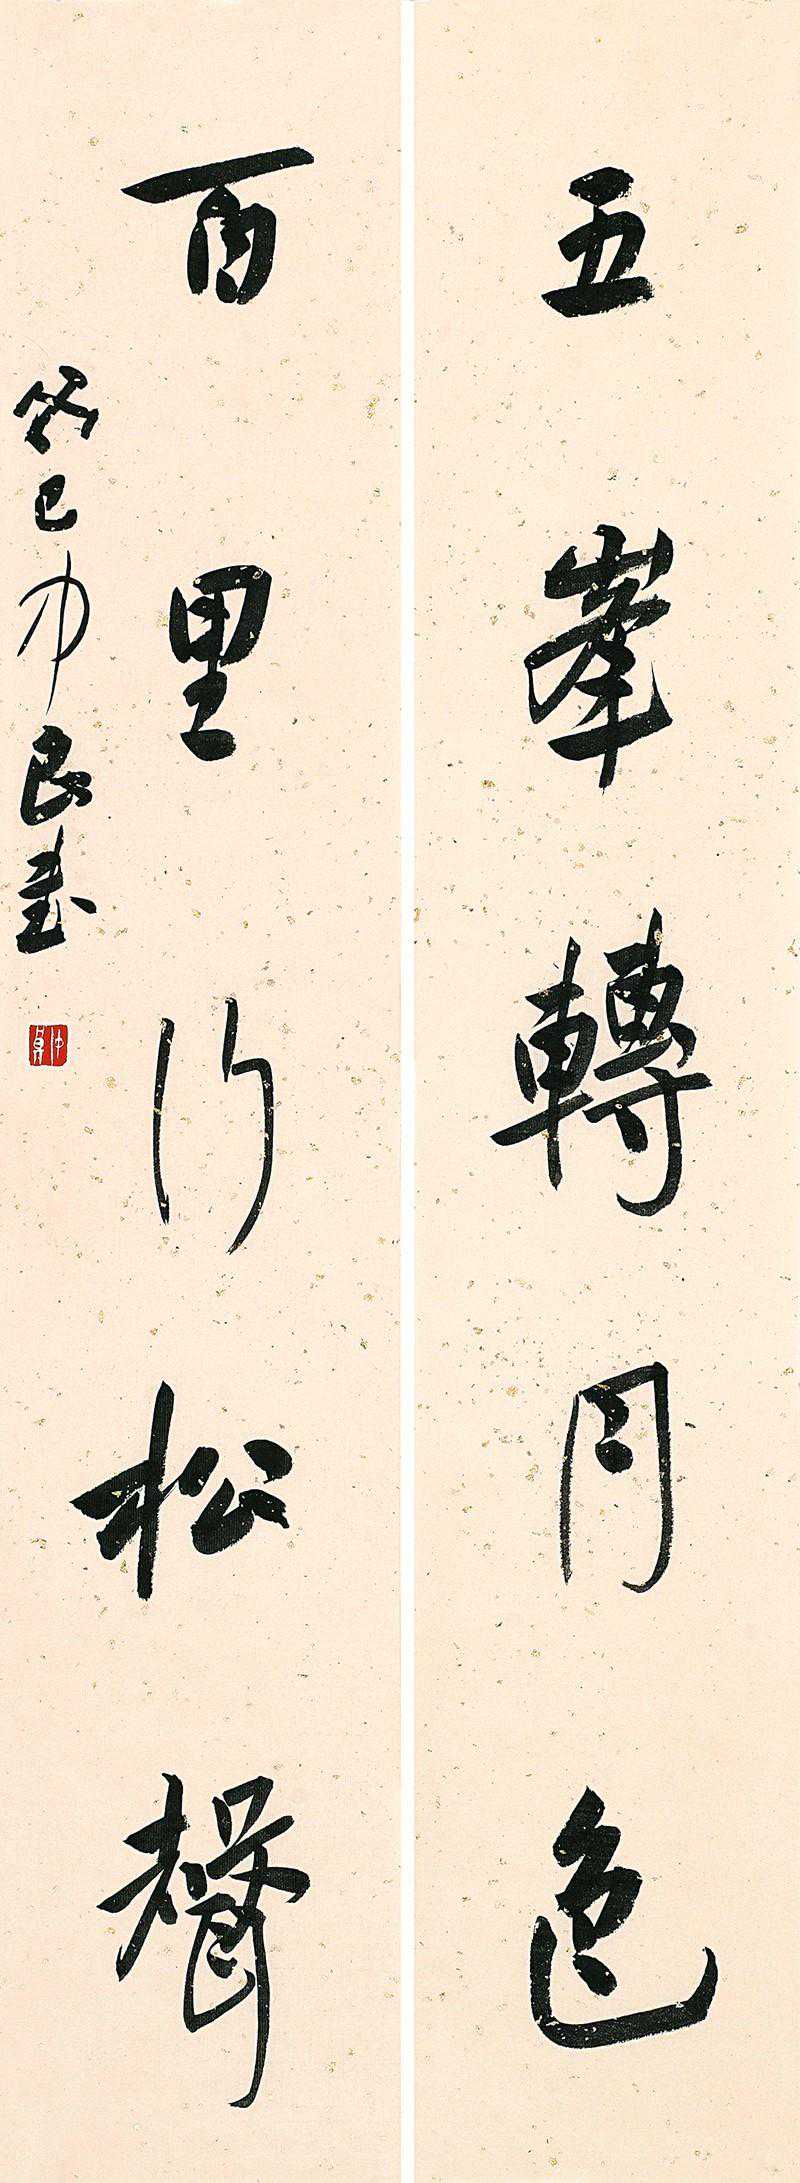 五峯轉月色
百里行松聲
癸巳仲良書